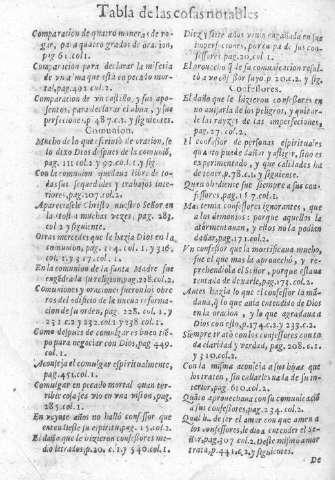 Tabla de las cosas notables
Comparacion de quatro maneras de re-
gar, para quatro grados de oracion,
pag. 61. col. 1.
Comparacion para declarar la miseria
de vna alma que està en pecado mor-
tal, pag. 492 col. 2.
Comparacion de vn castillo, y sus apo-
sentos, para declarar el alma, y sus
perfecciones. 487. c. 2. y siguientes.
Comunion.
Mucho de lo que seruia de oracion, se
lo dixo Dios despues de la comuniõ,
pag. 111. col. 2 y 90. col. 1. y sig.
Con la comunion quedaua libre de to-
das sus sequedades y trabajos inte-
riores, pag. 207. col. 2.
Apareciasele Christo nuestro Señor en
la hostia muchas vezes, pag. 283.
col. 2 y siguiente.
Otras mercedes que le hazia Dios en la
comunion, pag. 214. col. 1. y 316.
col. 1. y 317. col. 1.
En la comunion de la santa Madre fue
engendrada la religion, pag. 228. col. 2.
Comuniones y oraciones fueron los obre-
ros del edificio de la nueua reforma-
cion de su orden, pag. 228. col. 1. y
231. c. 2 y 232. col. 1. y 238 col. 1.
Como despues de comulgar es buen tiẽ-
po para negociar con Dios, pag 449.
col. 1.
Aconseja el comulgar espiritualmente,
pag. 451. col. 1.
Comulgar en pecado mortal quan terri-
ble cosa sea vio en vna vision, pag.
285. col. 1.
En veynte años no hallò confessor que
entendiesse su espiritu, pag. 15. col. 2.
El daño que le hizieron confessores me-
dio letrados, p. 20. c. 1. y 540. col. 1.
Diez y siete años viuio engañada en las
imperfecciones, por culpa de sus con-
fessores pag. 20. col. 1
El prouecho q̃ de su comunicacion resul-
tò a vn cõfessor suyo p. 20. c. 2. y sig.
Confessores.
El daño que le hizieron confessores en
no auisarla de los peligros, y quitar-
le las rayzes de las imperfeciones,
pag. 27. col. 2.
El confessor de personas espirituales
quanto puede dañar y afligir, sino es
experimentado, y que calidades ha
de tener, p. 78. c. 1. y siguiente.
Quan obediente fue siempre a sus con-
fessores, pag. 157. col. 2.
Mas temia confessores ignorantes, que
a los demonios: porque aquellos la
atormentauan, y estos no la podian
dañar, pag. 171. col. 2.
Vn confessor que la mortificaua mucho,
fue el que mas la aprouechò, y re-
prehendiola el Señor, porque estaua
tentada de dexarle, pag. 173. col. 2.
Antes hazia lo que el confessor la mã-
daua, q̃ lo que auia entendido de Dios
en la oracion, y lo que agradaua a
Dios con esto, p. 174. c. 2. y 233. c. 2.
Siempre tratò con los confessores con to-
da claridad y verdad, pag. 208. c. 1.
y 310. col. 2.
Con la misma aconseja a sus hijas que
los traten, sin callarles nada de su in-
terior, pag. 610. col. 2.
Quãto aprouechaua con su comunicaciõ
a sus confessores, pag. 234. col. 2.
Qual ha de ser el amor con que amen a
los confessores, le dio a entender el Se-
ñor, pag. 307 col. 2. Deste mismo amor
trata, p. 441. c. 2. y siguientes.
De